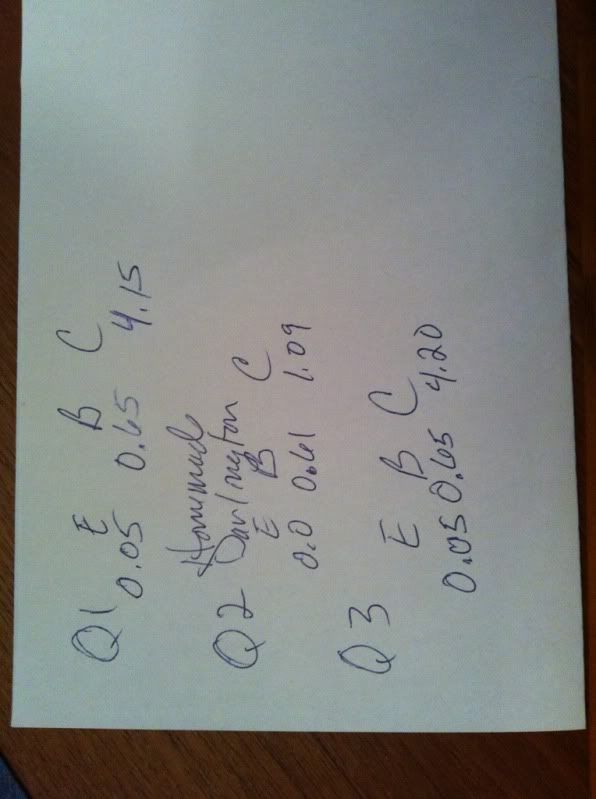 Q1 E B C
0.05 0.65 4.15
Homemade
Q2 Darlington
E B C
0.0 0.61 1.09
Q3 E B C
0.05 0.65 4.20